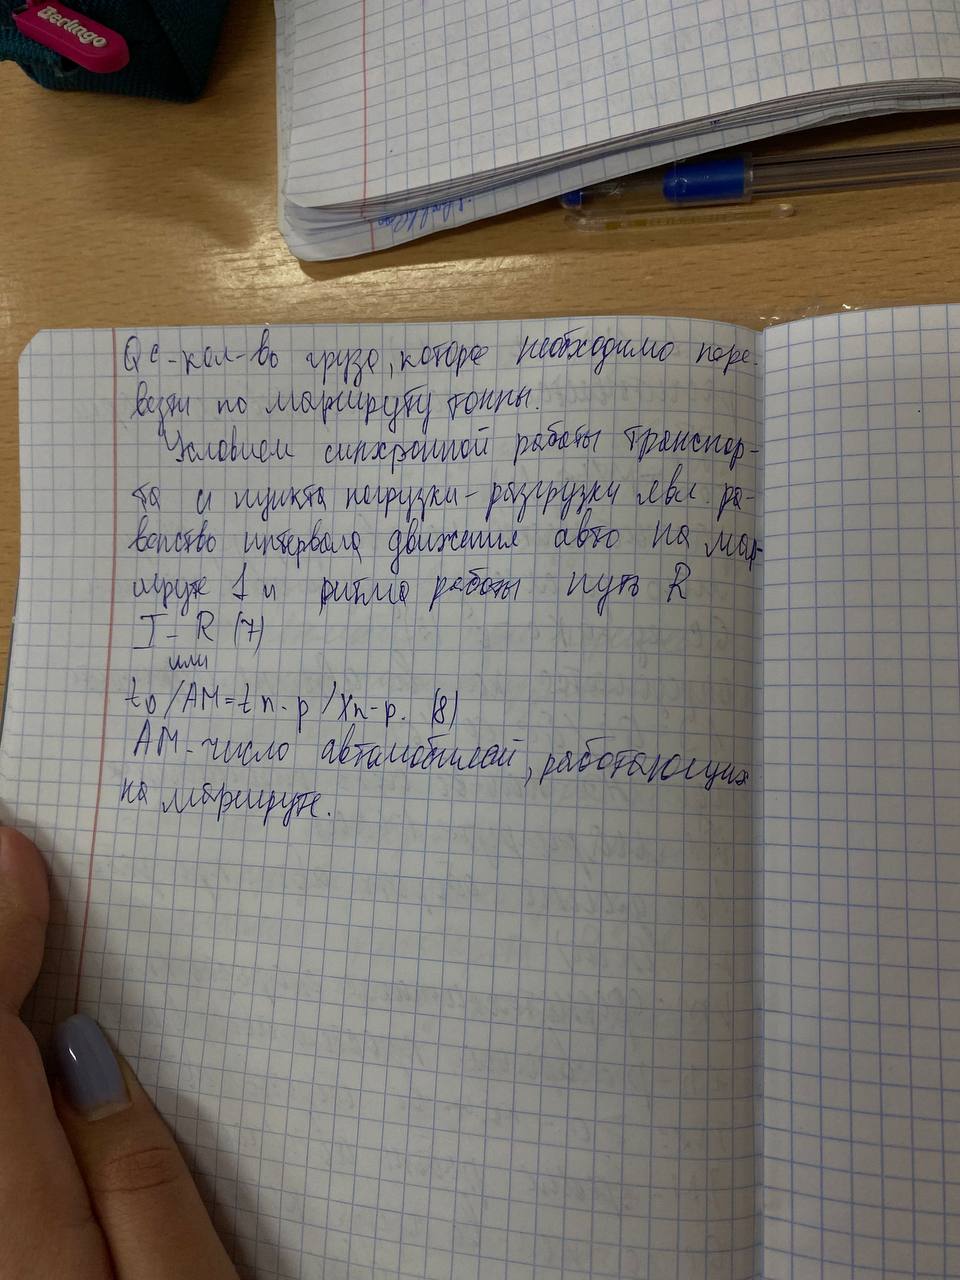 Berlingo
Qс - кол-во груза, которое необходимо пере-
везти по маршруту тонны.
Условием синхронной работы транспор-
та и пункта погрузки - разгрузки явл. ра-
венство интервала движения авто на мар-
шруте 1 и ритма работы путь R
I - R (7)
или
to/AM = t п-р / Xп-р. (8)
AM - число автомобилей, работающих
на маршруте.